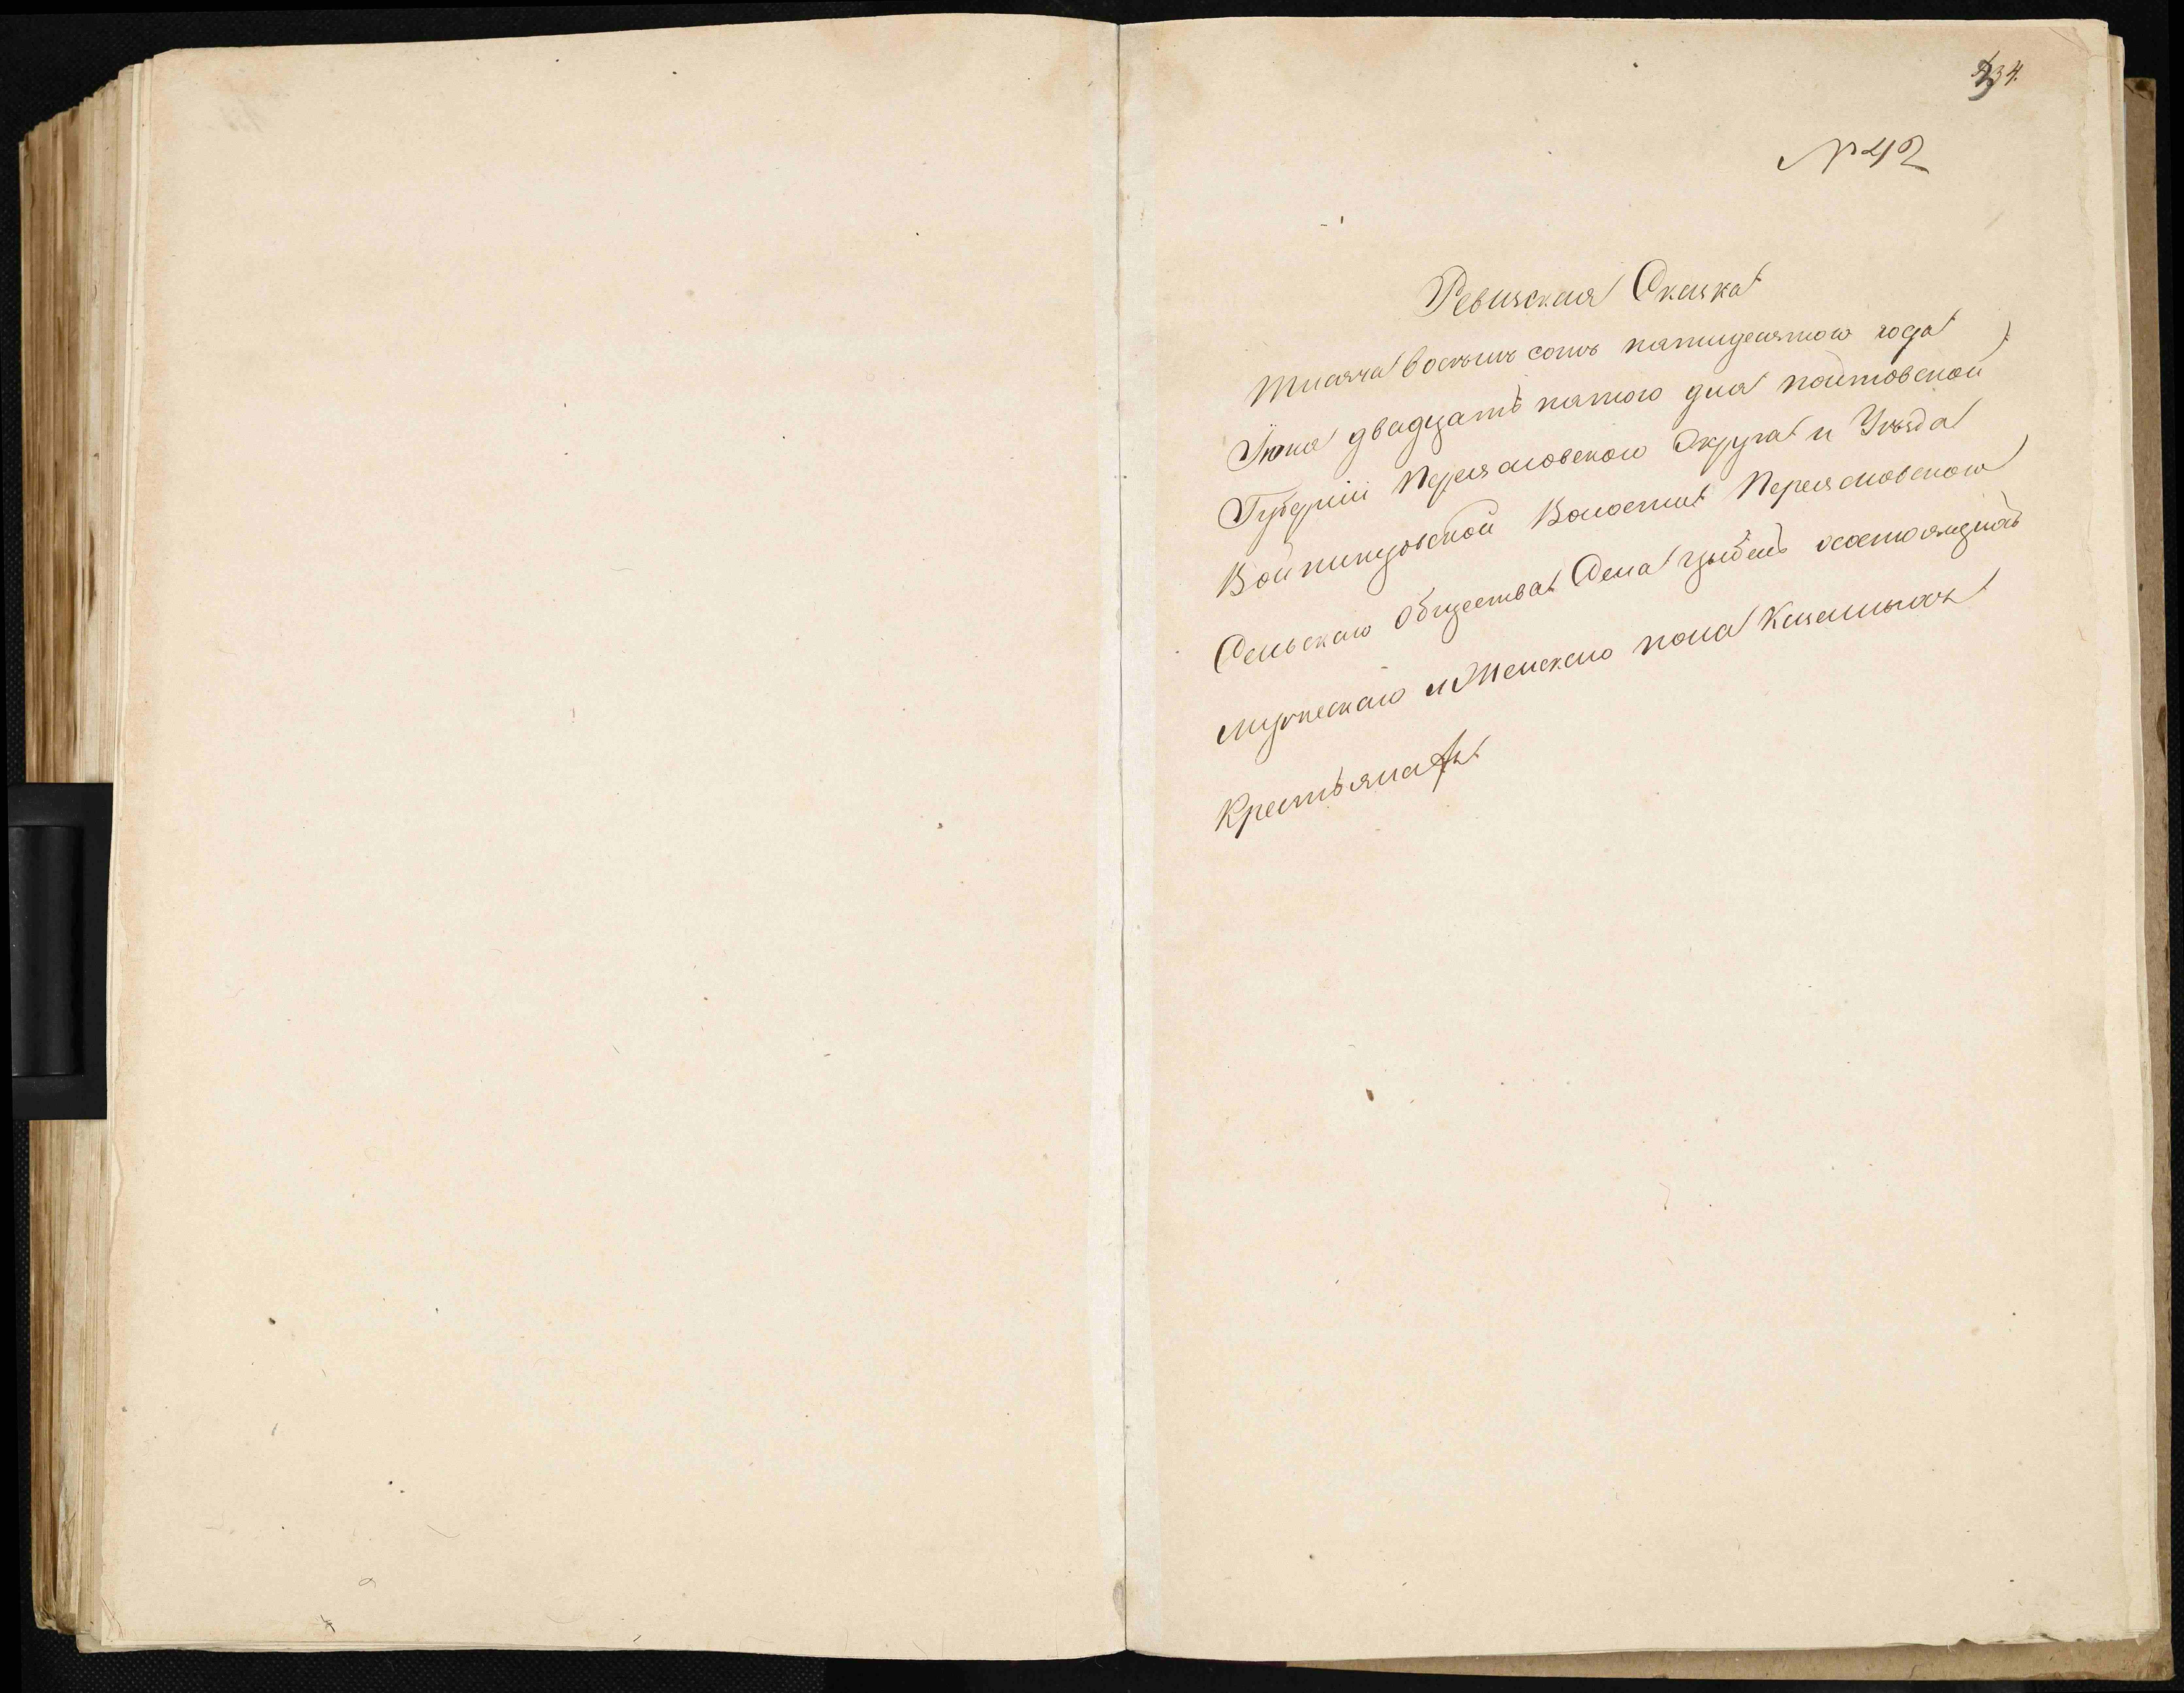 434.
№ 42
Ревизская Сказка
Тисяча восемь сотъ пятидесятого года
Іюня двадцать пятого дня полтовской
Губерніи Переясловского Округа и Уезда
Войтовской Волости Переясловского
Сельскаго Общества Села цыбель состоящихъ
мужескаго и Женскаго пола Казеныхъ
Крестьянахъ